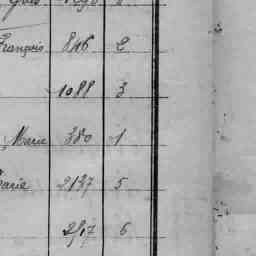 François 846 2
1088 3
Marie 380 1
Marie 2137 5
6